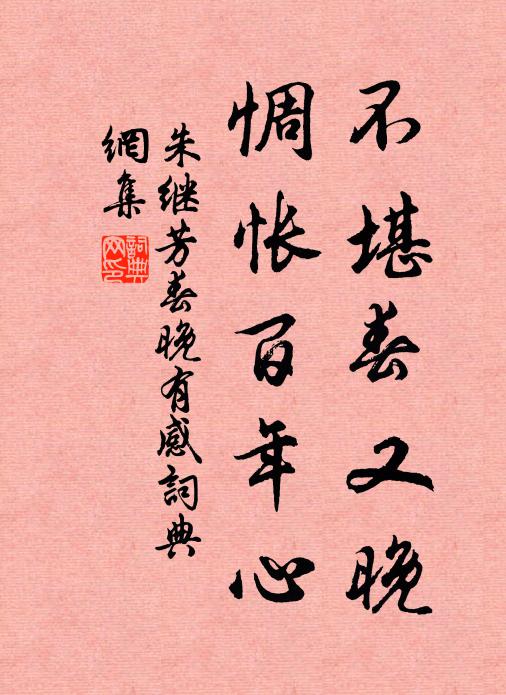 不堪春又晚
惆怅百年心
朱继芳春晚有感詞典
網集
詞典
网印